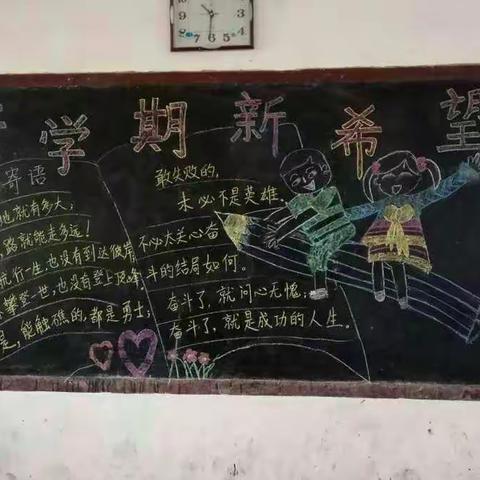 学期新希望
寄语
就有多大;
路就能走多远!
航行一生,也没有到达彼岸
攀登一世,也没有登上顶峰,
是,能触礁的,都是勇士;
敢失败的,
未必不是英雄,
不必太关心奋
斗的结局如何。
奋斗了,就问心无愧;
奋斗了,就是成功的人生。